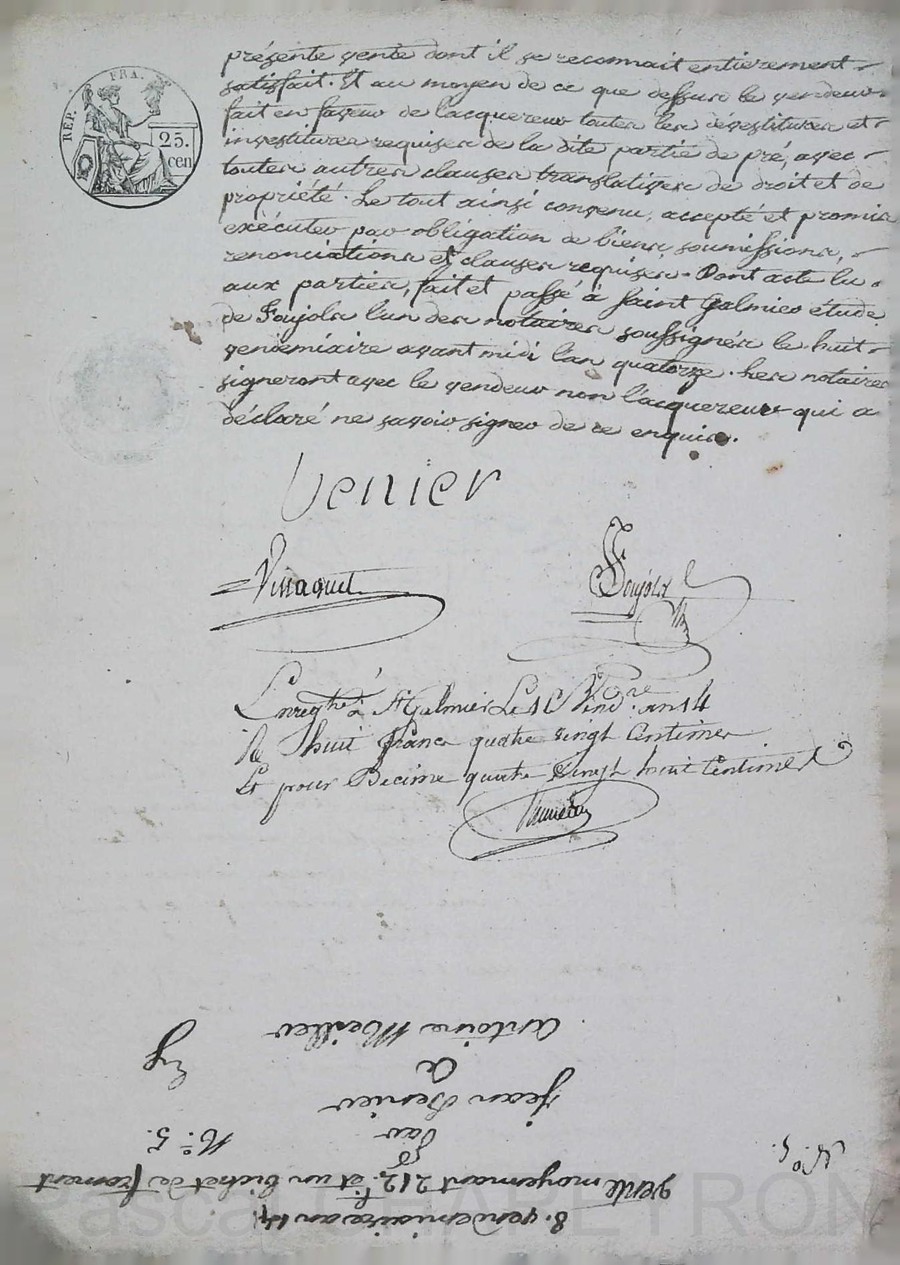 REP. FRA.
25.
cen
présente vente dont il se reconnait entièrement
satisfait. Et au moyen de ce que dessus le vendeur
fait en faveur de l'acquereur toutes les dévestitures et
investitures requises de la dite partie de pré, avec
toutes autres clauses translatives de droit et de
propriété. Le tout ainsi convenu, accepté et promis
exécuter par obligation de biens, soumissions,
renonciations et clauses requises. Dont acte lu
aux parties, fait et passé à Saint Galmier étude
de Foujols l'un des notaires soussignés le huit
vendemiaire avant midi l'an quatorze. Les notaires
signeront avec le vendeur non l'acquereur qui a
déclaré ne savoir signer de ce enquis.
Venier
Foujols
Enregtré à St Galmier Le Vendre. an 14
huit francs quatre vingt Centimes
Et pour Décime quatre vingt huit Centimes
8. vendemiaire an 14
Vente moyennant 212 f. et un bichet de froment
par
N.° 5.
N.° 5.
Jean Venier
a
Antoine Meiller
Pascal CHAPEYRON